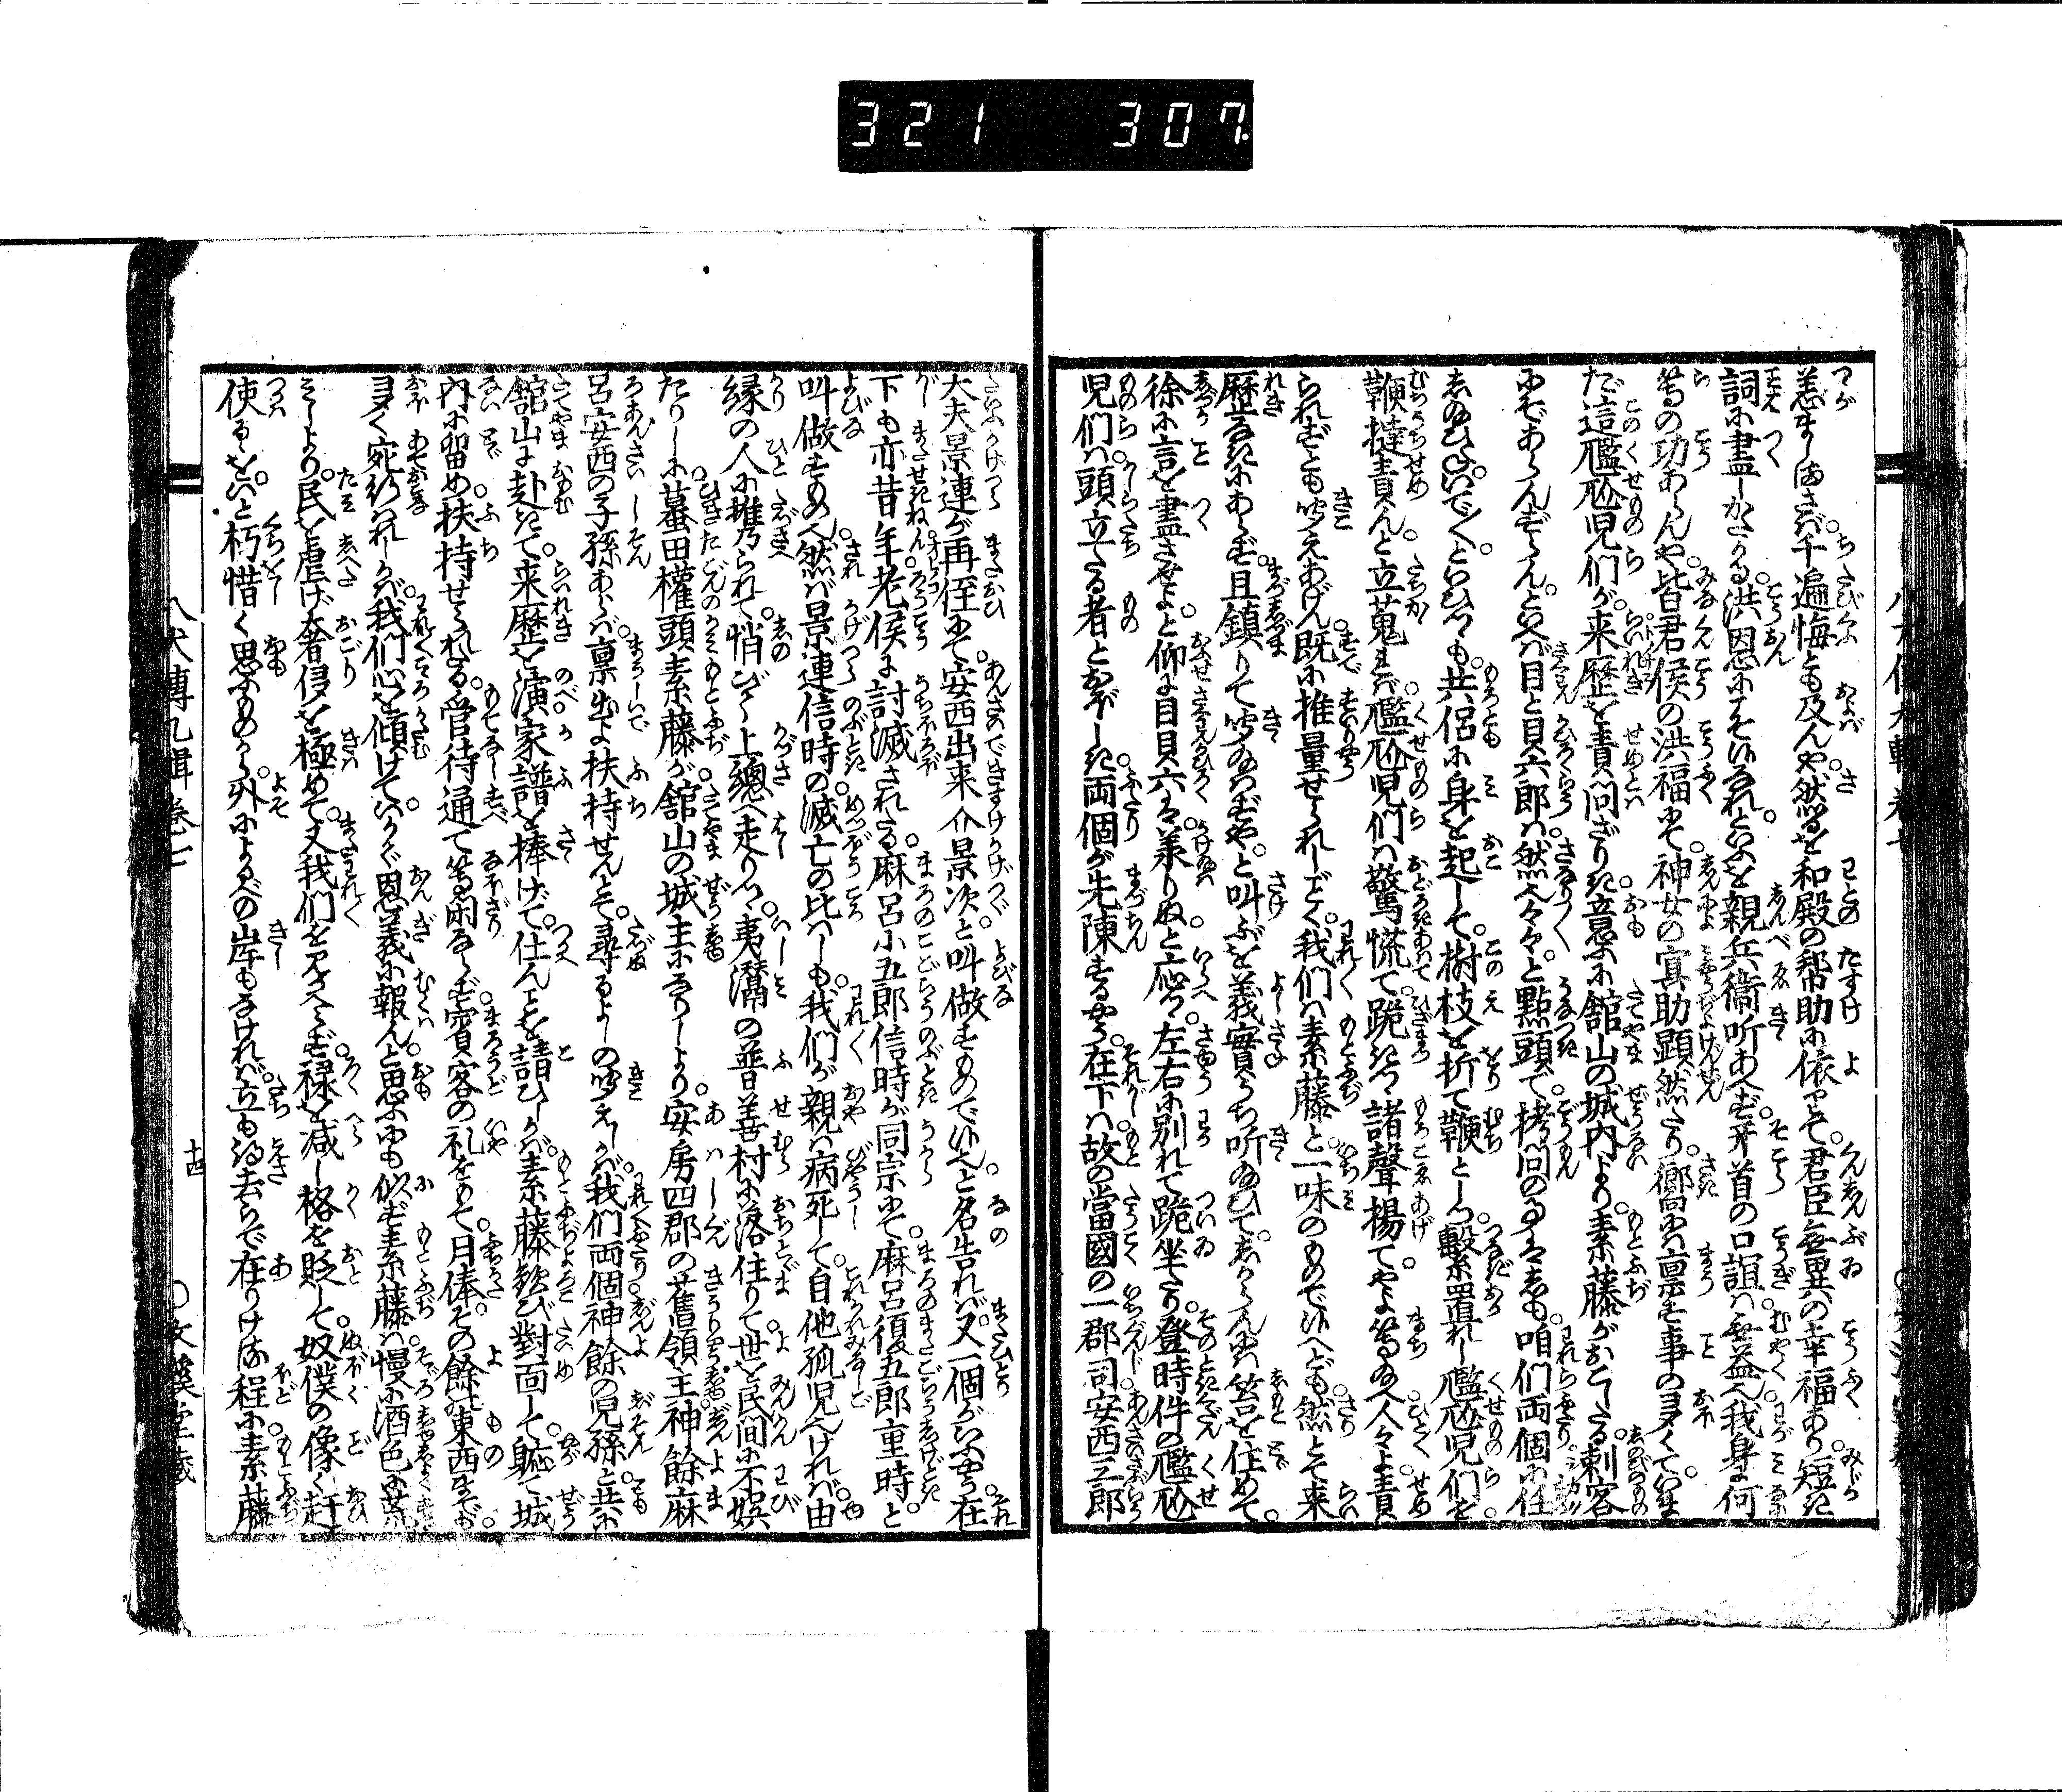 321 307
恙ましまさば千遍悔とも及んや然るを和殿の幇助に依とて君臣無異の幸福あり短き
詞に盡しかたかる洪恩にこそ候なれといふを親兵衛听あへず开首の口誼は無益へ我身に何
等の功あらんや皆君侯の洪福にて神女の冥助顕然たり郷には禀す事の多くていま
だ這尷尬児們が来歴を責問ざりき意ふに舘山の城内より素藤がおこしたる刺客
にぞあらんずらんといへば目と貝六郎は然へ々々と點頭て拷問の事はしも咱們両個に任
しねひねいでいでといひつゝも共侶に身を起して樹枝を折て鞭としつ繋置れし尷尬児們を
鞭撻責んと立蒐れば尷尬児們は驚慌て跪きつ諸聲揚てやよ等ね人々よ責
られずとも咲えあげん既に推量せられしごとく我們は素藤と一味のものて候へども然とて来
歴なきにあらず且鎮りて咲ねかずやと叫ぶを義實うち听ねひてしからんには笞を住めて
徐に言を盡させよと仰に目貝六は業りぬと応つゝ左右に別れて跪坐たり登時件の尷尬
児們は頭立たる者とおぼしき両個が先陳ずるやう在下は故の當國の一郡司安西三郎
大夫景連が再侄にて安西出来介景次と叫做すものて候へと名告れば又一個がいふやう在
下も亦昔年老侯に討滅されたる麻呂小五郎信時が同宗にて麻呂復五郎重時と
叫做すものへ然ば景連信時の滅亡の比しも我們が親は病死して自他孤児へければ由
縁の人に携られて悄びに上總へ走りつゝ夷灊の普善村に落住りて世を民間に不娯
たりしに蟇田權頭素藤が舘山の城主になりしより安房四郡の舊領主神餘麻
呂安西の子孫あらば禀出よ扶持せんとて尋るよしの咲えしかば我們両個神餘の児孫と共に
舘山に赴きて来歴を演家譜を捧げて仕んことを請ひしかば素藤歓び對面して軈て城
内に留め扶持せられたる管待通て等閑ならず賓客の礼をもて月俸その餘も東西までも
多く宛行れしかば我們心を傾けていかで恩義に報んと思ふにも似ず素藤は慢に酒色に荒
みしより民を虐げ奢侈を極めて又我們を見かへらず禄を減し格を貶して奴僕の像く赶
使るゝをいと朽惜く思ふものから外によるべの岸もなければ立も得去らで在りける程に素藤
八犬傳九輯 巻七
十四
○文溪堂藏